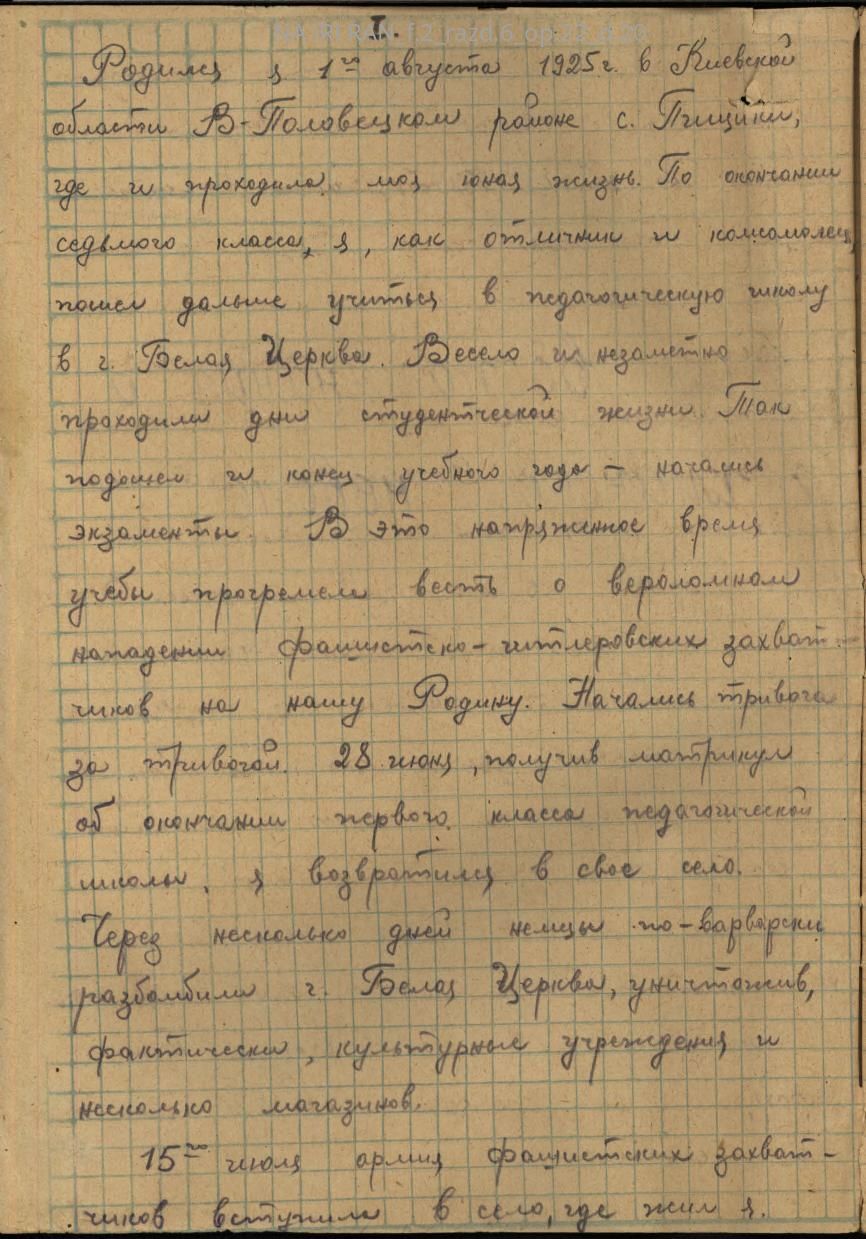 NA IRI RAN F.2 razd.6 op.22 d.26
I.
Родился я 1го августа 1925 г. в Киевской
области В-Половецком районе с. Пищики,
где и проходила моя юная жизнь. По окончании
седьмого класса, я, как отличник и комсомолец,
пошел дальше учиться в педагогическую школу
в г. Белая Церква. Весело и незаметно
проходили дни студентческой жизни. Так
подошел и конец учебного года – начались
экзаменты. В это напряженное время
учебы прогремела весть о вероломном
нападении фашистско-гитлеровских захват-
чиков на нашу Родину. Начались тривога
за тривогой. 28 июня, получив матрикул
об окончании первого класса педагогической
школы, я возвратился в свое село.
Через несколько дней немцы по-варварски
разбомбили г. Белая Церква, уничтожив,
фактически, культурные учреждения и
несколько магазинов.
15го июля армия фашистских захват-
чиков вступила в село, где жил я.